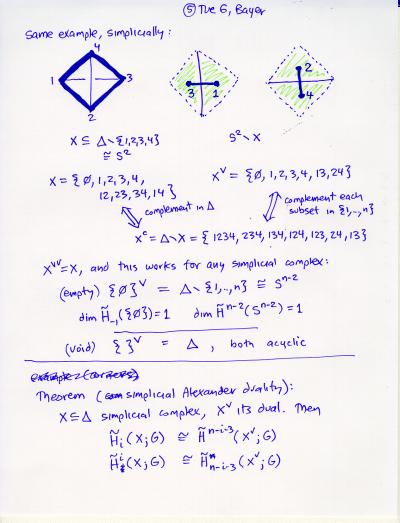 ⑤ Tue 6, Bayer
Same example, simplicially:
4
1 3
2
3 1
2
4
X ⊆ Δ∖{1,2,3,4}
≅ S²
S²∖X
X = {∅, 1, 2, 3, 4,
12, 23, 34, 14}
X^∨ = {∅, 1, 2, 3, 4, 13, 24}
complement in Δ
complement each
subset in {1,..,n}
X^c = Δ∖X = {1234, 234, 134, 124, 123, 24, 13}
X^∨∨ = X, and this works for any simplicial complex:
(empty) {∅}^∨ = Δ∖{1,..,n} ≅ S^{n-2}
dim H̃_{-1}({∅}) = 1 dim H̃^{n-2}(S^{n-2}) = 1
(void) { }^∨ = Δ, both acyclic
Theorem (simplicial Alexander duality):
X ⊆ Δ simplicial complex, X^∨ its dual. Then
H̃_i(X;G) ≅ H̃^{n-i-3}(X^∨;G)
H̃^i(X;G) ≅ H̃_{n-i-3}(X^∨;G)